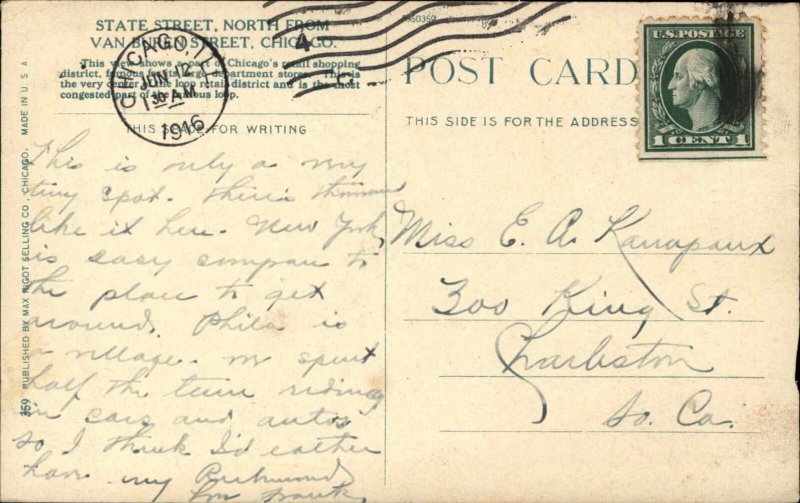 STATE STREET, NORTH FROM
VAN BUREN STREET, CHICAGO.
This view shows a part of Chicago's retail shopping
district, famous for its large department stores. This is
the very center of the loop retail district and is the most
congested part of the famous loop.
THIS SPACE FOR WRITING
CHICAGO, 
JUN 12
1 30 AM
1916
4
POST CARD
THIS SIDE IS FOR THE ADDRESS
U.S. POSTAGE
1 CENT 1
This is only a very
tiny spot. There's thousand
like it here. New York
is easy compare to
the place to get
around. Phila is
a village. We spent
half the time riding
in cars and autos
so I think I'd rather
have my Richmond
Miss E. A. Kanapaux
300 King St.
Charleston
So. Ca.
359 PUBLISHED BY MAX RIGOT SELLING CO., CHICAGO. MADE IN U.S.A.